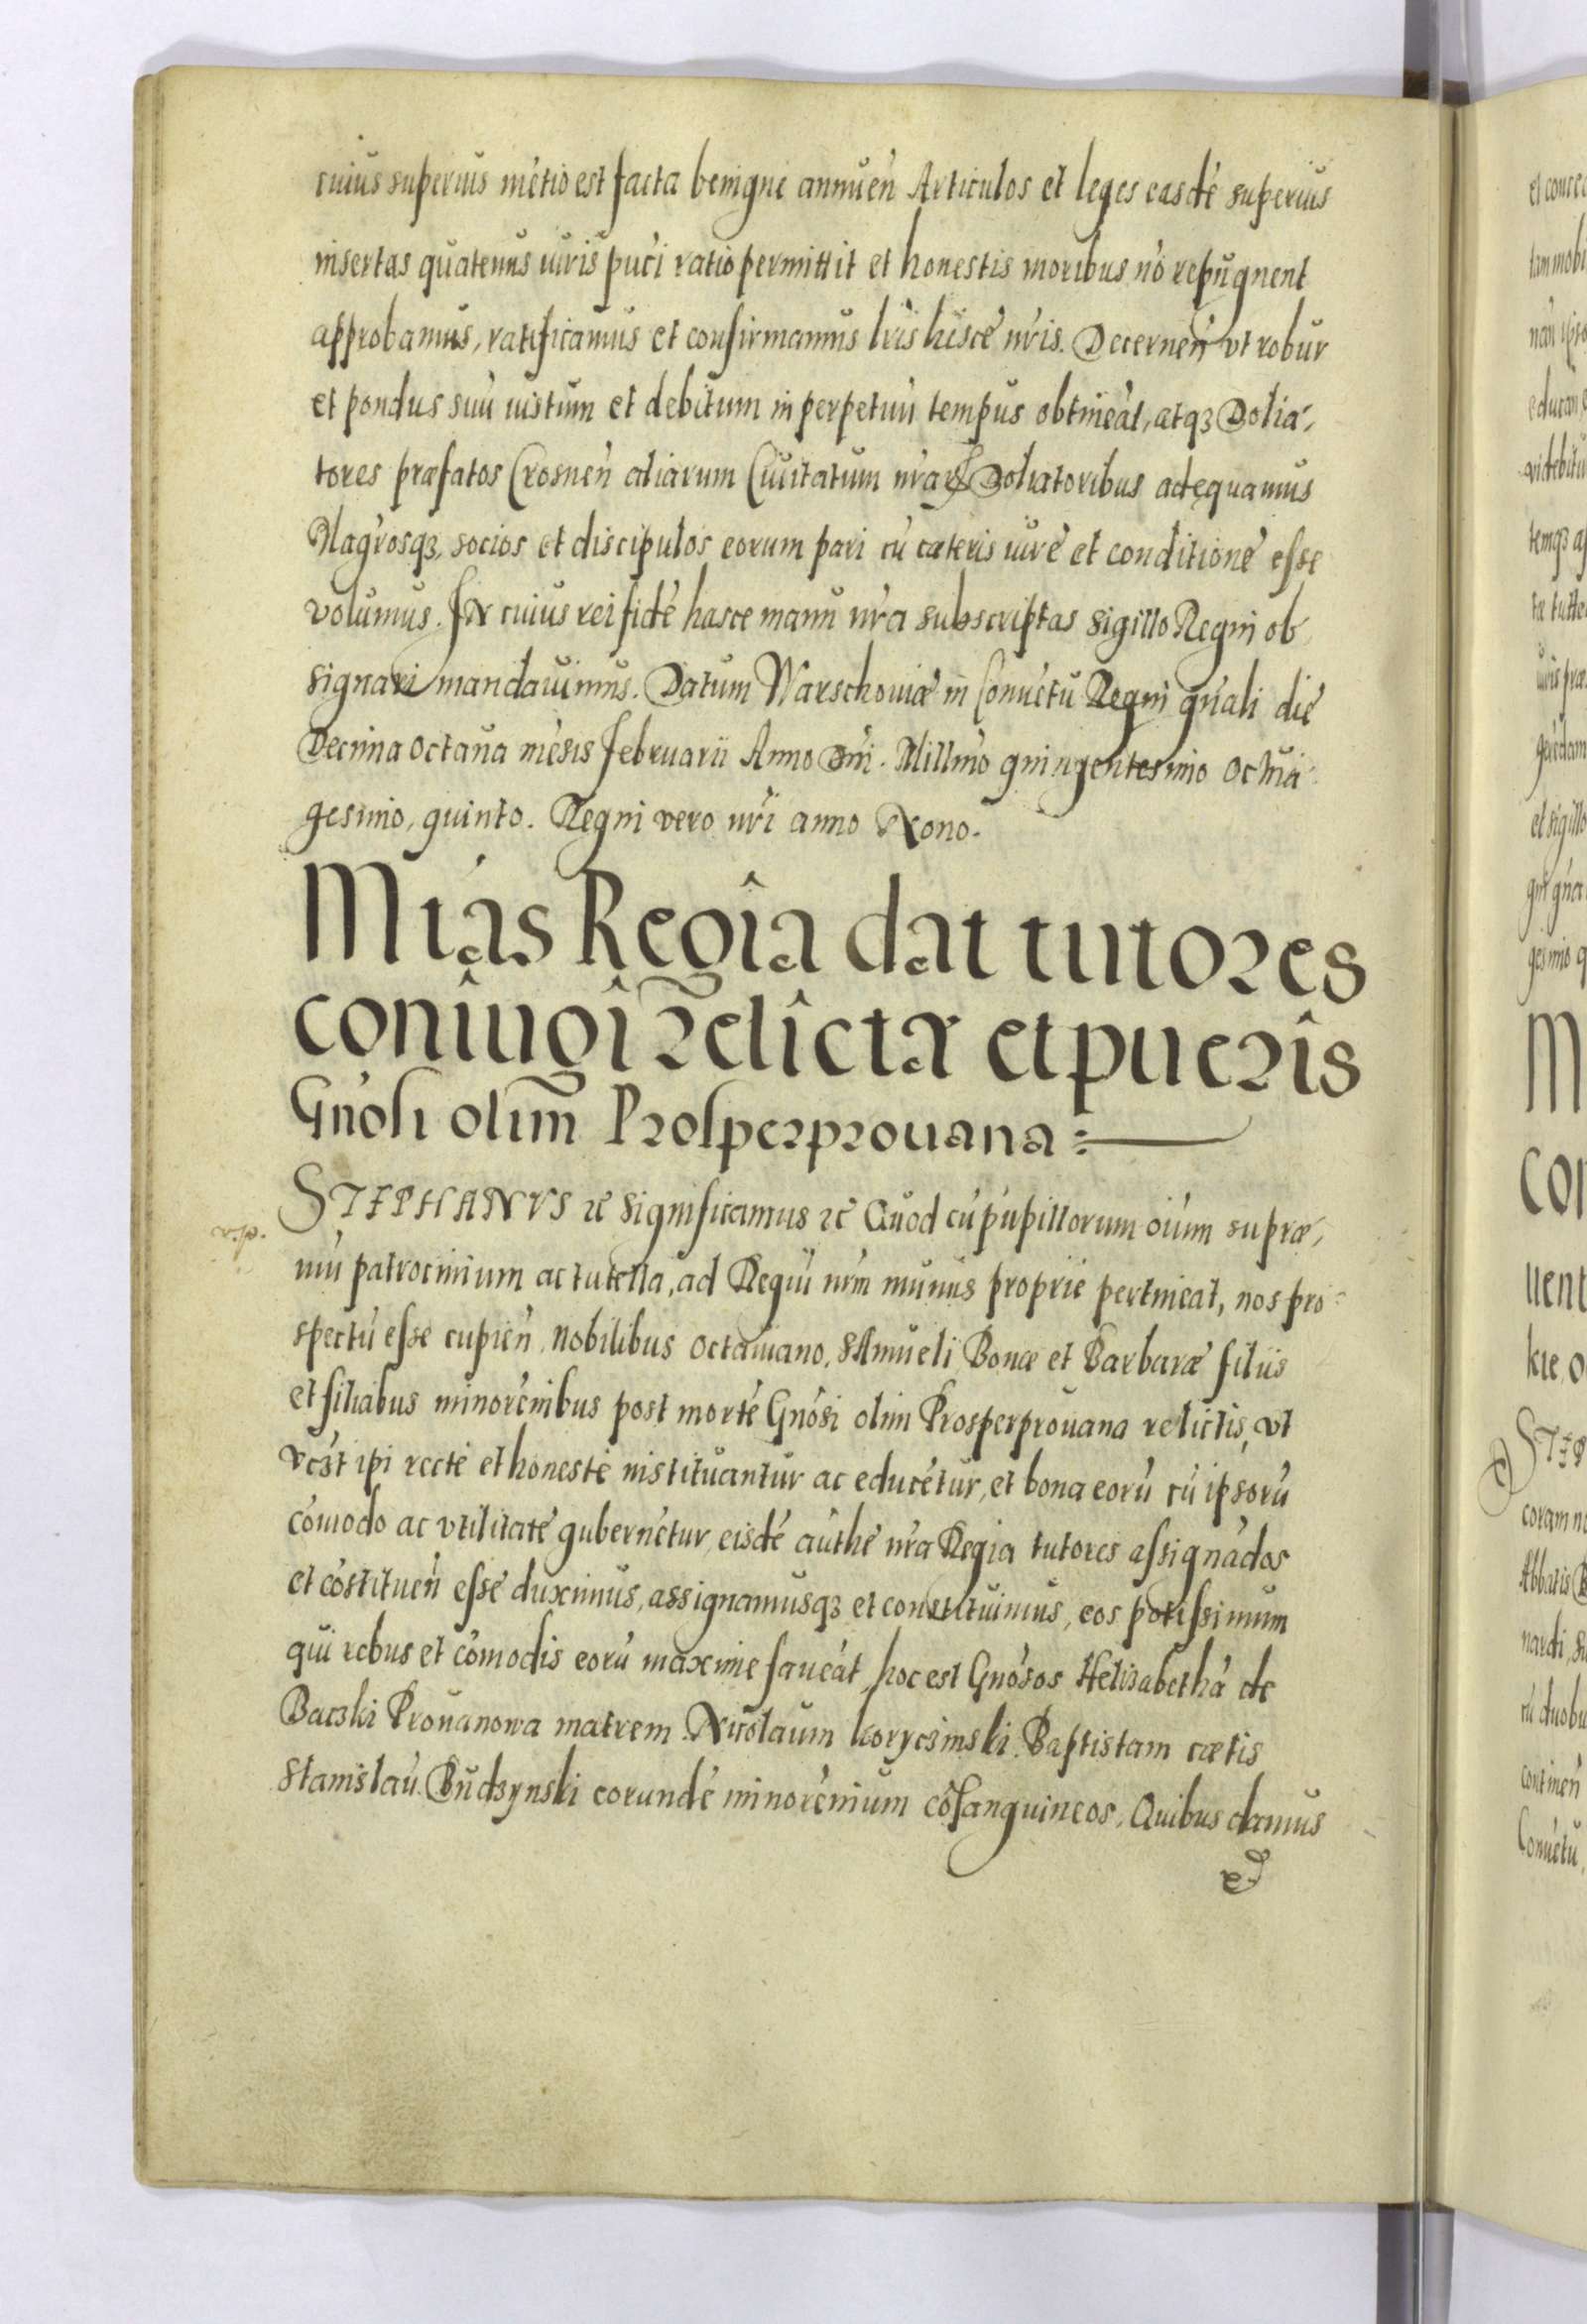 cuius superius mėtio est facta benigne annuen̄ Articulos et leges easdē superius
insertas quatenus iuris puċi ratio permittit et honestis moribus nō repugnent
approbamus, ratificamus et confirmamus lris hisce nris. Decernen̄ vt robur
et pondus suū iustum et debitum in perpetuū tempus obtineāt, atqꝫ Dolia-
tores præfatos Crosnen̄ aliarum Ciuitatum nraꝝ Doliatoribus adęquamus
Magrosqꝫ, socios et discipulos eorum pari cū cæteris iure et conditione esse
volumus. In cuius rei fidē hasce manu nra subscriptas sigillo Regni ob
signari mandauimus. Datum Warschouiæ in Conuētu Regni gnali die
Decima octaua mēsis Februarii Anno Dni. Millmo quingentesimo octua-
gesimo, quinto. Regni vero nri anno Nono.
Mtas Regia dat tutores
coniugi relictæ et pueris
Gnosi olim Prosperprouana:
STEPHANVS ꝛc Significamus ꝛc Quod cū pupillorum oium supræ-
v.p.
mū patrocinium ac tutella, ad Regiū nrm munus proprie pertineat, nos pro-
spectū esse cupien̄, Nobilibus Octauiano, SAmueli Bonæ et Barbaræ filiis
et filiabus minorēnibus post mortē Gnosi olim Prosperprouana relictis, vt
ipi recte et honeste instituantur ac educētur, et bona eorū cū ipsorū
cōmodo ac vtilitate gubernētur, eisdē authe nra Regia tutores assignādos
et cōstituen̄ esse duximus, assignamusqꝫ et constituimus, eos potissimum
qui rebus et cōmodis eorū maxime faueāt, hoc est Gnosos Helisabethā de
Baczki Prouanowa matrem Nicolaum korycinski Baptistam cætis
Stanislaū Budzynski eorundē minorēnium cōsanguineos. Quibus damus